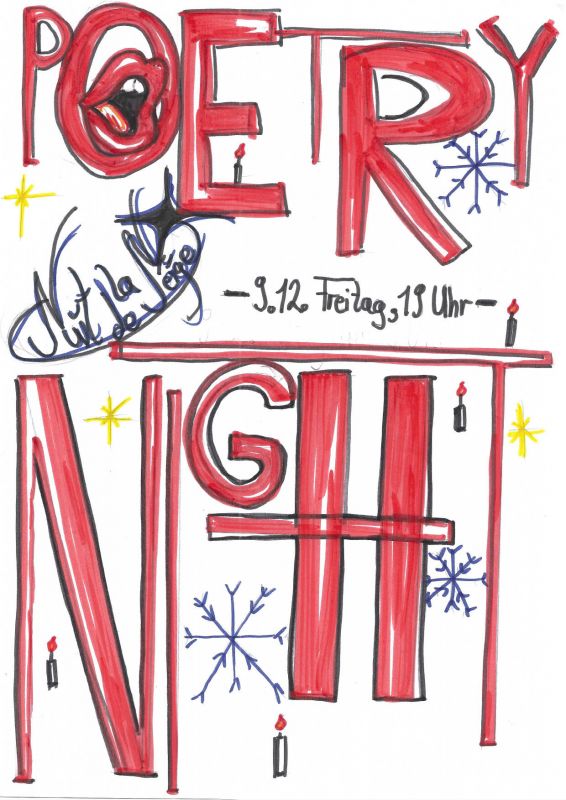 POETRY
Nuit de la Neige
- 9.12. Freitag, 19 Uhr -
NIGHT